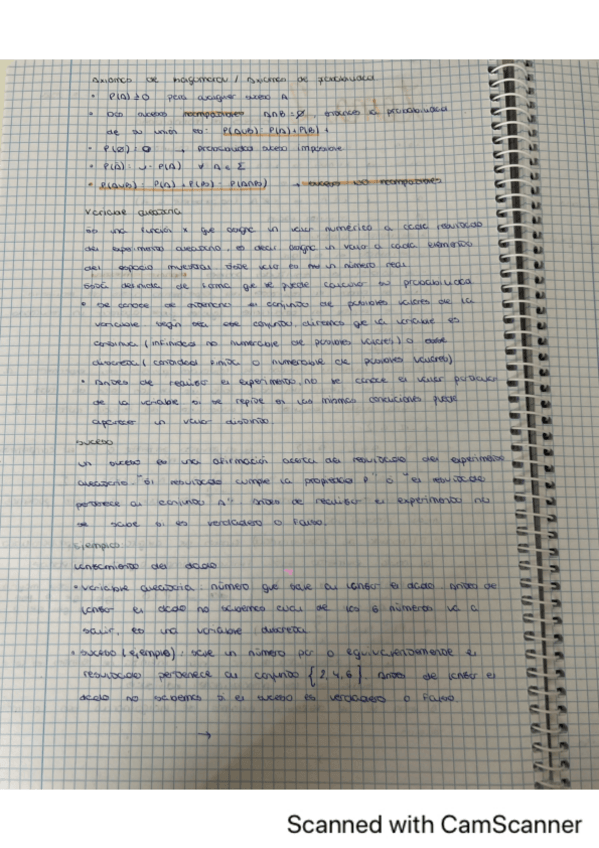 Axiomas de Kolmogorov / Axiomas de probabilidad
• P(A) ≥ 0 para cualquier suceso A
• Dos sucesos incompatibles A∩B = ∅, entonces la probabilidad
de su unión es: P(A∪B) = P(A) + P(B)
• P(∅) = 0 → probabilidad suceso imposible
• P(Ā) = 1 - P(A) ∀ A ∈ Σ
• P(A∪B) = P(A) + P(B) - P(A∩B) → sucesos no incompatibles
Variable aleatoria
Es una función X que asigna un valor numérico a cada resultado
del experimento aleatorio, es decir asigna un valor a cada elemento
del espacio muestral, dicho valor es un número real
Está definida de forma que se puede calcular su probabilidad
• Se conoce de antemano el conjunto de posibles valores de la
variable. Según sea ese conjunto, diremos que la variable es
continua (infinidad no numerable de posibles valores) o
discreta (cantidad finita o numerable de posibles valores)
• Antes de realizar el experimento, no se conoce el valor particular
de la variable si se repite en las mismas condiciones puede
aparecer un valor distinto.
Suceso
Un suceso es una afirmación acerca del resultado del experimento
aleatorio. "El resultado cumple la propiedad P" o "el resultado
pertenece al conjunto A". Antes de realizar el experimento no
se sabe si es verdadero o falso.
Ejemplo
Lanzamiento del dado
• Variable aleatoria: número que sale al lanzar el dado. Antes de
lanzar el dado no sabemos cual de los 6 números va a
salir, es una variable discreta
• Suceso (ejemplo): sale un número par o equivalentemente el
resultado pertenece al conjunto {2,4,6}. Antes de lanzar el
dado no sabemos si el suceso es verdadero o falso.
→
Scanned with CamScanner